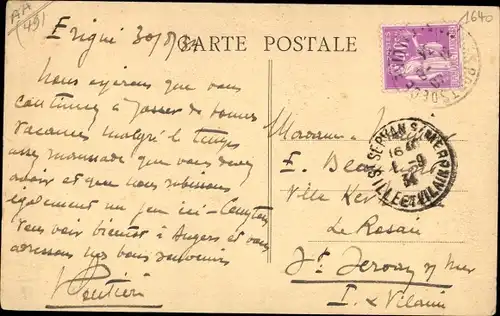 AA
(49)
1640
CARTE POSTALE
Erigné 30/8/34
Nous espérons que vous
continuez à passer de bonnes
vacances malgré le temps
assez maussade que vous devez
avoir et que nous subissons
également un peu ici - Comptons
vous voir bientôt à Angers et vous
adressons nos bons souvenirs
Madame
E.
Ville Ker
Le Rosais
St Servan s/ Mer
I. & Vilaine
ST SERVAN S/MER
16
1-9
34
ILLE-ET-VILAINE